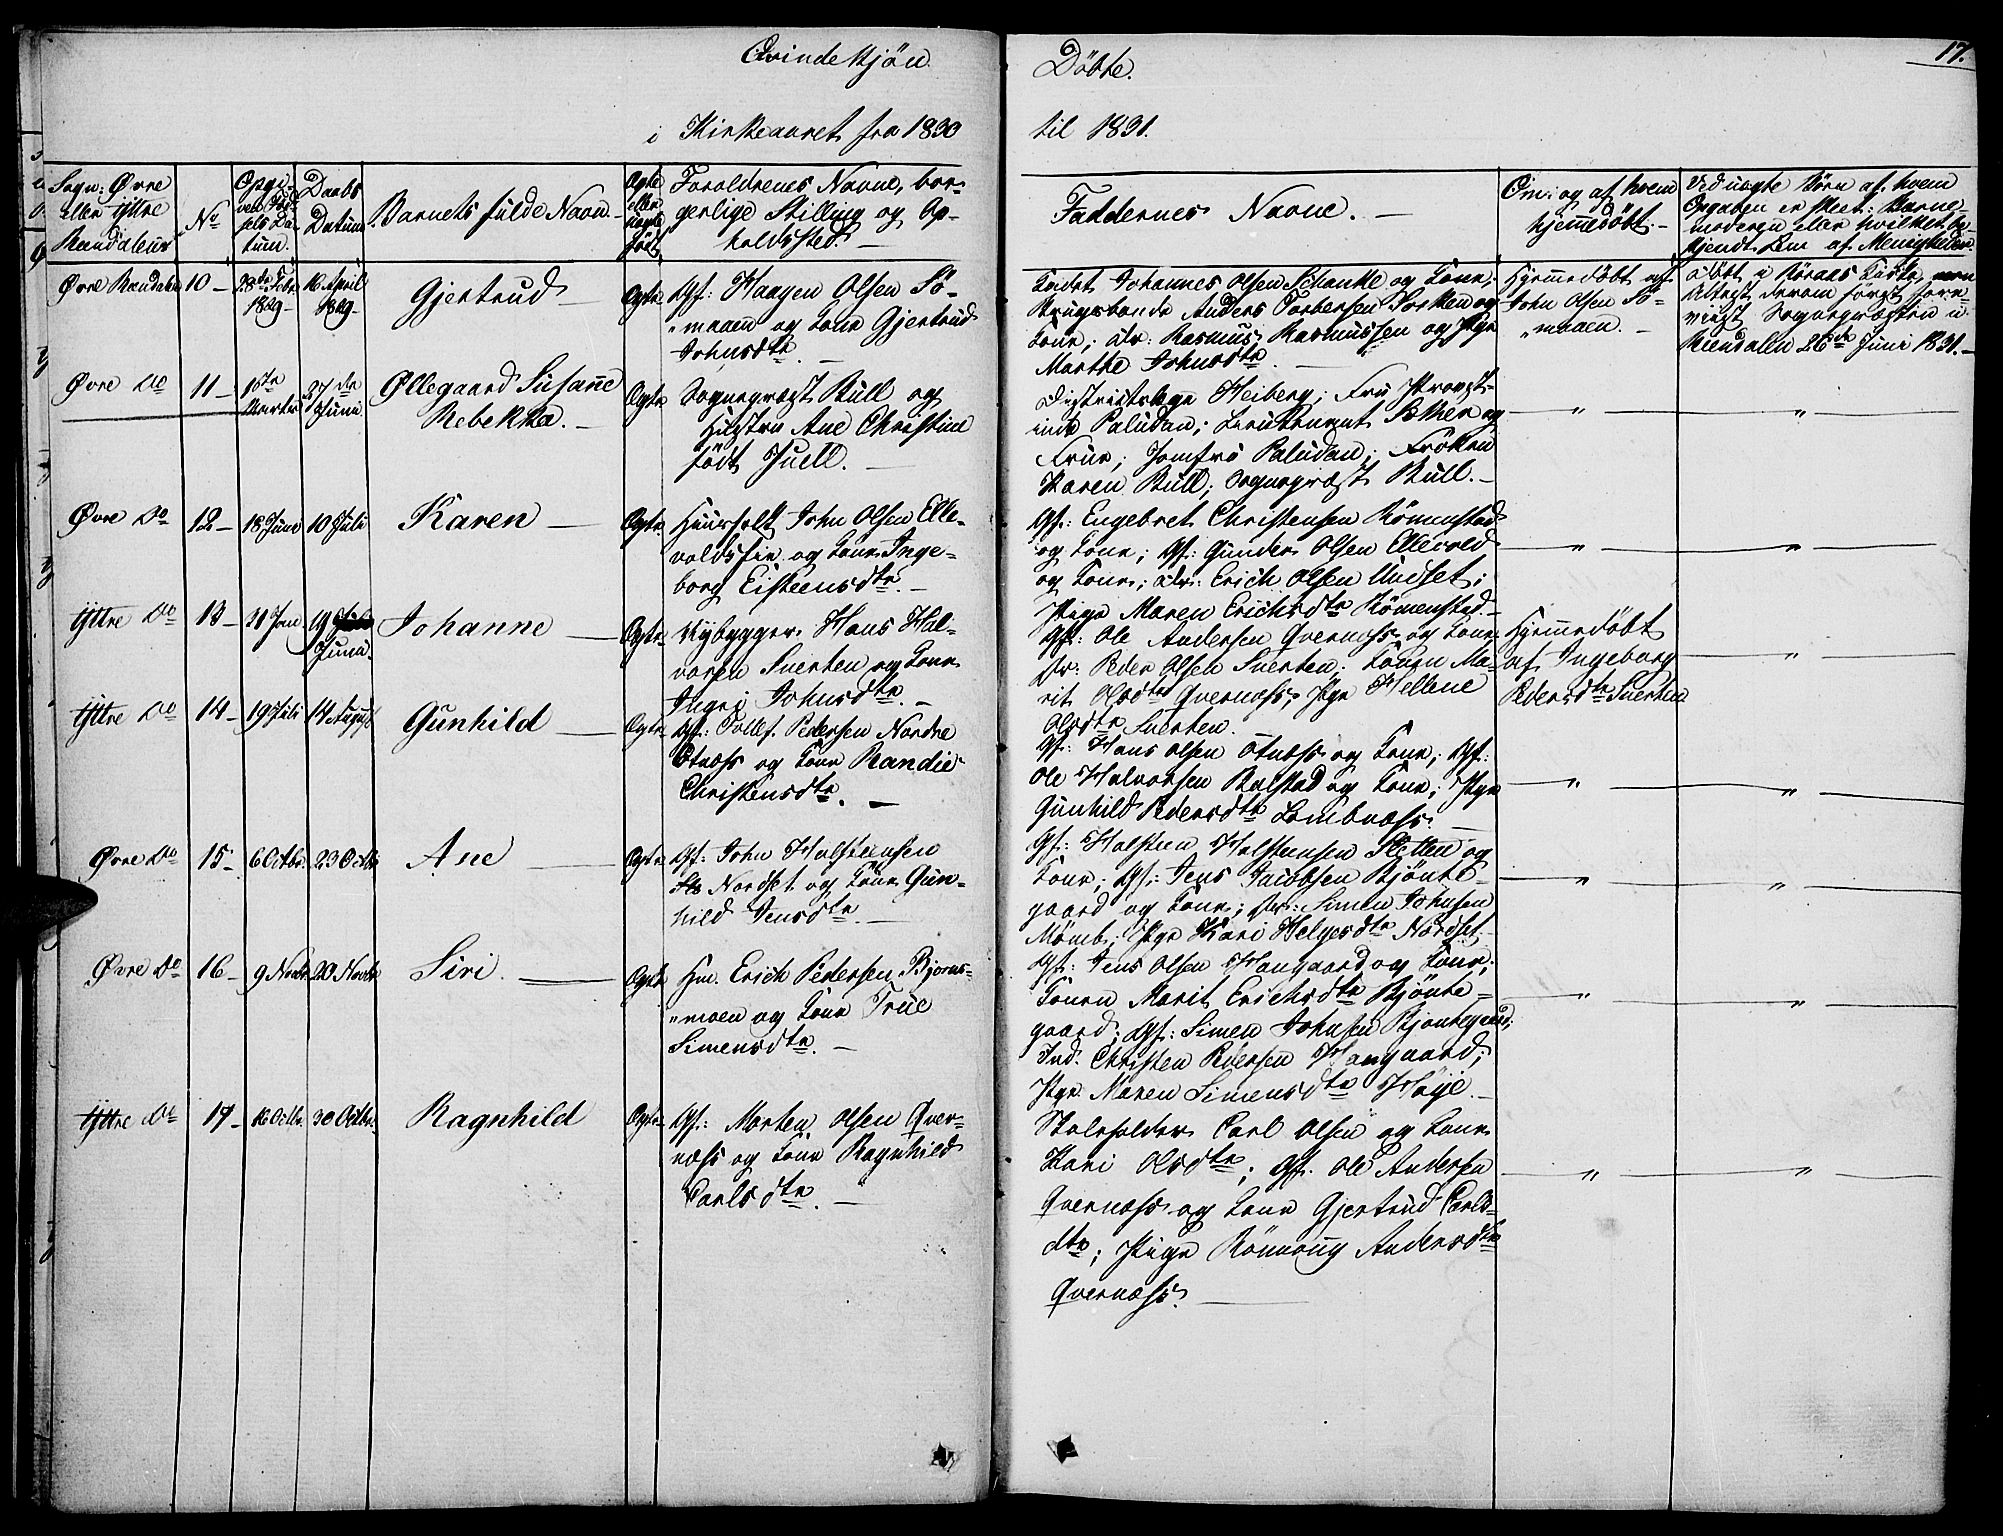 Qvindekjön
Döbte.
17.
i Kirkeaaret fra 1830
til 1831.
Sogn: Øvre
eller Yttre
Rendalens
No
Opgi-
ven Föd-
sels Da-
tum.
Daabs
Datum
Barnets fulde Navn.
Ægte
eller
uægte
födt
Forældrenes Navne, bor-
gerlige Stilling og Op-
holdssted.
Faddernes Navne.
Om: og af hvem
hjemmedöbt.
Ved uægte Börn af hvem
Opgaven er skeet: Barne-
moderen eller hvilket be-
kjendt Lem af Menigheden
Øvre Rendalen 10 28de Febr 1829 16 April 1829 Gjertrud Ægte
Gf: Haagen Olsen Sö-
maaen og Kone Gjertrud
Johnsdtr.
Johannes Olsen Schancke og Kone;
Brugsbonde Anders Torbersen Sorken og
Kone; Dr: Rasmus Rasmussen og Pige
Marthe Johnsdtr
Hjemmedöbt af
John Olsen Sö-
maaen.
Döbt i Röraas Kirke, men
Attest derom först fore-
viist Sognepræsten i
Rendalen 26de Juni 1831.
Øvre Do 11 1ste Marts 27de Juni Øllegaard Susanne
Rebekka. Ægte
Sognepræst Bull og
Hustru Ane Christine
födt Juell.
Districtslæge Heiberg; Fru Provst-
inde Paludan; Lieutenant og
Frue; Jomfru Paludan; Fröken
Karen Bull; Sognepræst Bull.
Øvre Do 12 18 Juni 10 Juli Karen Ægte
John Olsen Elle-
voldsøen og Kone Inge-
borg Eisteensdtr.
Gf: Engebret Christensen Römenstad
og Kone; Gf: Gunder Olsen Ellevold
og Kone; Dr: Erich Olsen Undset;
Pige Maren Erichsdtr Römenstad.
Yttre Do 13 31 Jan 19 Juni. Johanne Ægte
Nybygger Hans Hal-
vorsen Suerten og Kone
Ingri Johnsdtr.
Gf: Ole Andersen Qvernæss og Kone
Dr: Peder Olsen Suerten; Konen Ma-
rit Olsdtr Qvernæss; Pige Hellene
Olsdtr Suerten.
Hjemmedöbt
af Ingeborg
Pedersdtr Suerten
Yttre Do 14 19 Juli 14 August Gunhild Ægte
Gf: Tollef Pedersen Nordre
Otnæss og Kone Randie
Christensdtr.
Gf: Hans Olsen Otnæss og Kone; Gf:
Ole Halvorsen Balstad og Kone; Pige
Gunhild Pedersdtr Lombnæss.
Øvre Do 15 6 Octbr. 23 Octbr Ane Ægte
Gf: John Halsteensen
Nordset og Kone Gun-
hild Jensdtr.
Gf: Halsteen Halsteensen Sletten og
Kone; Gf: Jens Jacobsen Bjönte-
gaard og Kone; Dr: Simen Johnsen
Mömb; Pige Kari Helgesdtr Nordset.
Øvre Do 16 9 Novbr 20 Novbr Siri. Ægte
Hm. Erich Pedersen Bjørns-
moen og Kone True
Simensdtr.
Gf: Jens Olsen Haugaard og Kone;
Konen Marit Erichsdtr Bjönte-
gaard; Gf: Simen Johnsen Bjöntegaard;
Ind. Christen Pedersen Haugaard;
Pige Maren Simensdtr Höije.
Yttre Do 17 16 Octbr. 30 Octbr. Ragnhild Ægte
Gf: Morten Olsen Qver-
næss og Kone Ragnhild
Carlsdtr.
Skoleholder Carl Olsen og Kone
Kari Olsdtr; Gf. Ole Andersen
Qvernæss og Kone Gjertrud Carls-
dtr; Pige Rönnoug Andersdtr
Qvernæss.